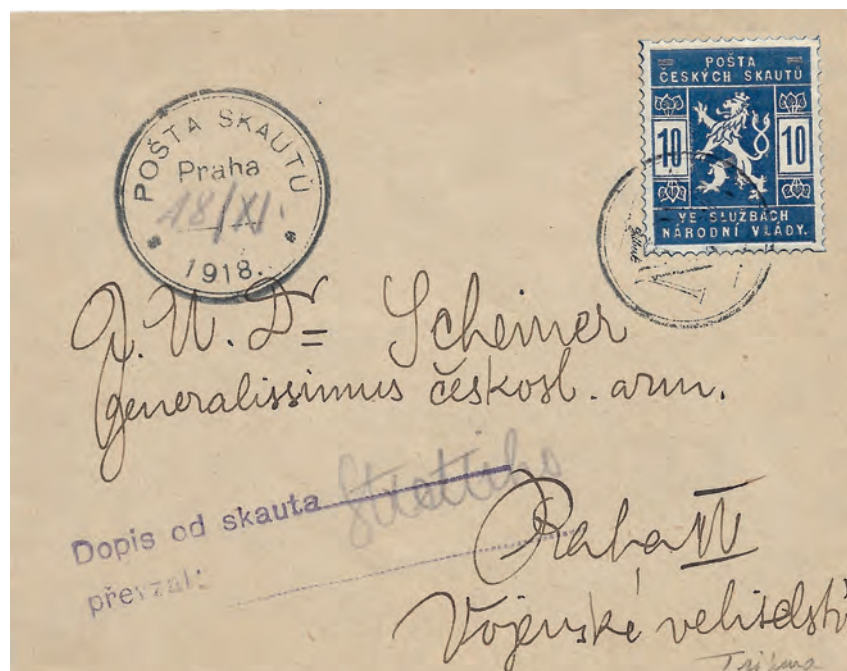 POŠTA SKAUTŮ
Praha
18/XI.
1918.
POŠTA
ČESKÝCH SKAUTŮ
10 10
VE SLUŽBÁCH
NÁRODNÍ VLÁDY.
J. U. Dr Scheiner
generalissimus českosl. arm.
Dopis od skauta
převzal:
Praha IV
Vojenské velitelstv